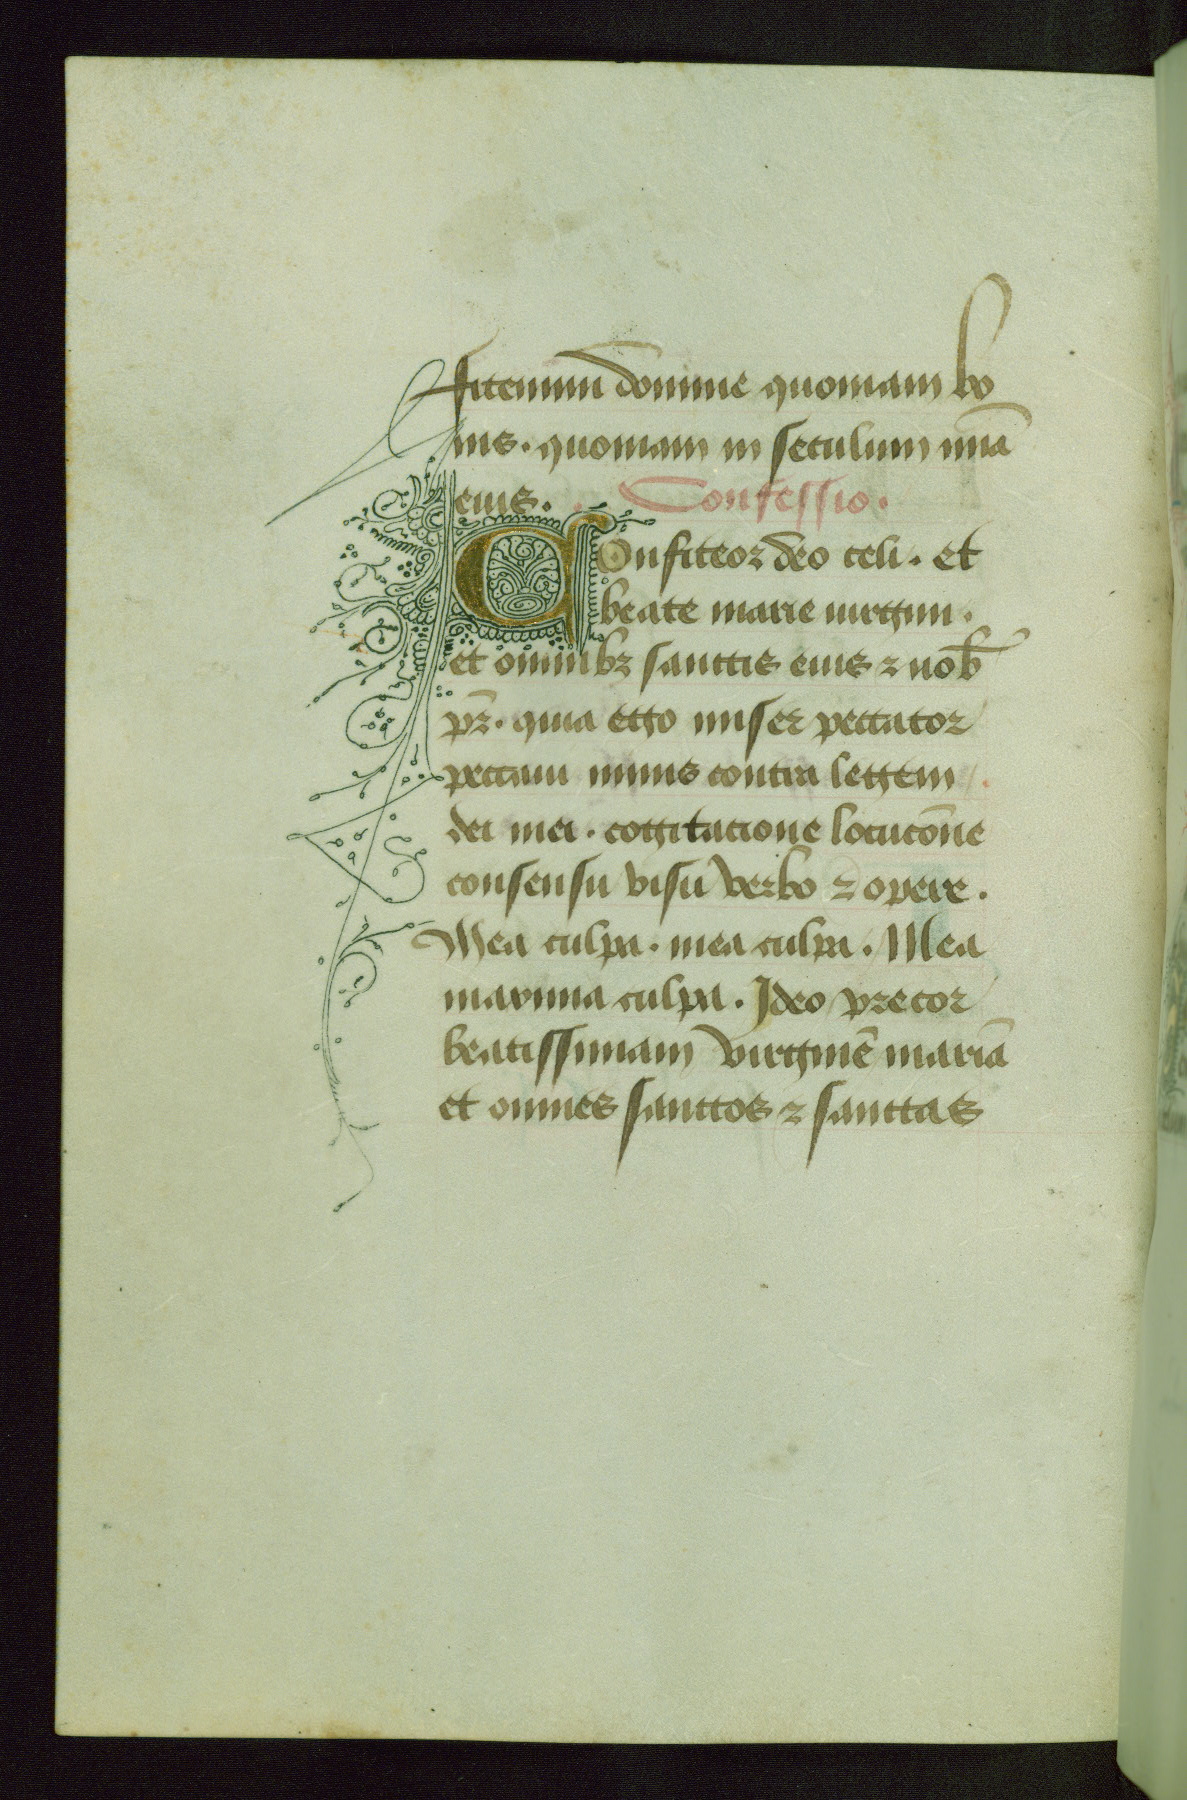 fitemini domine quoniam bo
nus. quoniam in seculum mīa
eius. Confessio.
Confiteor deo celi. et
beate marie uirgini.
et omnibz sanctis eius ⁊ uob̄
pr̄. quia ego miser peccator
peccaui nimis contra legem
dei mei. cogitacione locucōne
consensu visu verbo ⁊ opere.
Mea culpa. mea culpa. Mea
maxima culpa. Ideo precor
beatissimam virginē mariā
et omnes sanctos ⁊ sanctas